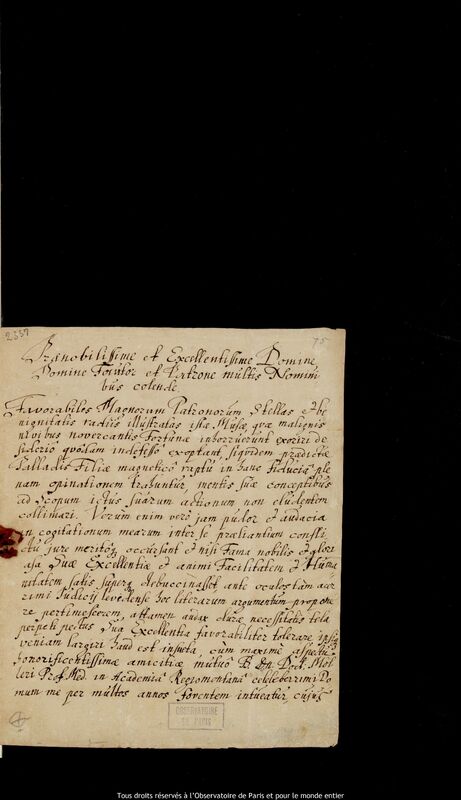 2537
75
Prænobilissime et Excellentissime Domine
Domine Fautor et Patrone multis Nomini
bus colende
Favorabiles Magnorum Patronorum Stellas et be
nignitatis radiis illustratas istæ Musæ, quæ malignis
nivibus novercantis Fortunæ inhorruerunt exoriri de
siderio quodam indefesso exoptant, siquidem prædictæ
Palladis Filiæ magnetico raptu in hanc fiduciæ ple
nam opinationem trahuntur, mentis suæ conceptibus
ad Scopum ictus suarum actionum non eludentem
collimari. Verum enim vero jam pudor et audacia
in cogitationum mearum inter se præliantium confli
ctu jure meritoq occursant et nisi Fama nobilis et glori
osa Suæ Excellentiæ et animi Facilitatem et Huma
nitatem satis superq debuccinasset, ante oculos tam acer
rimi Judicij levidense hoc literarum argumentum propone
re pertimescerem, attamen audax duræ necessitatis tela
perpeti pectus Sua Excellentia favorabiliter tolerare
veniam largiri haud est insueta, cum maxime aspectu
honorificentissimæ amicitiæ mutuo Dn Doct. Mol
leri Prof. Med. in Academia Regiomontana celeberrimi Do
mum me per multos annos foventem intueatur, cujus
OBSERVATOIRE
DE PARIS
Tous droits réservés à l'Observatoire de Paris et pour le monde entier